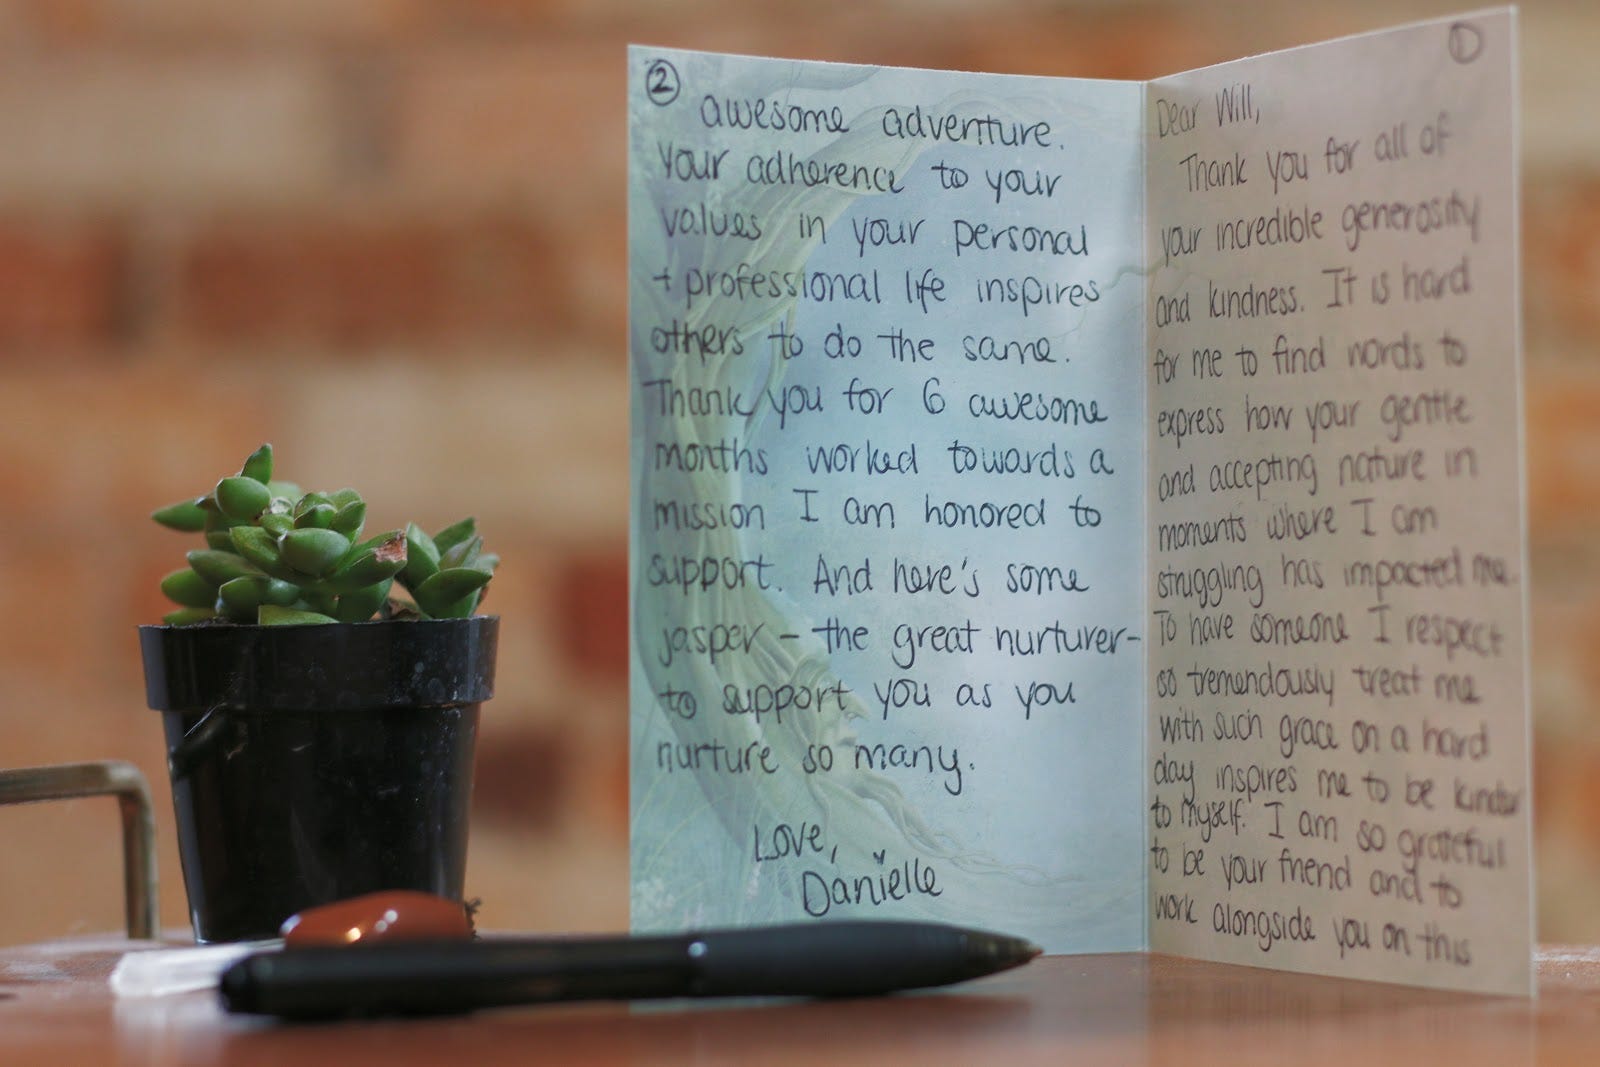 ①
Dear Will,
Thank you for all of
your incredible generosity
and kindness. It is hard
for me to find words to
express how your gentle
and accepting nature in
moments where I am
struggling has impacted me.
To have someone I respect
so tremendously treat me
with such grace on a hard
day inspires me to be kinder
to myself. I am so grateful
to be your friend and to
work alongside you on this
②
awesome adventure.
Your adherence to your
values in your personal
+ professional life inspires
others to do the same.
Thank you for 6 awesome
months worked towards a
mission I am honored to
support. And here's some
jasper - the great nurturer-
to support you as you
nurture so many.
Love,
Danielle